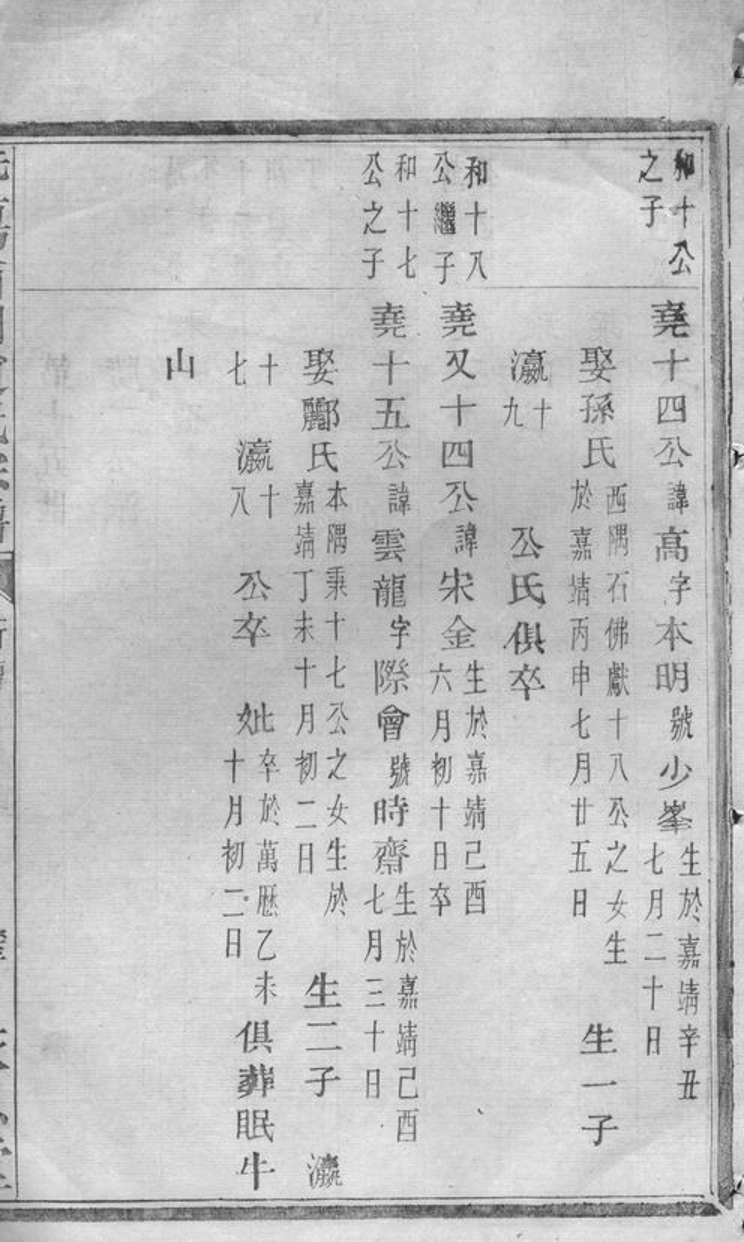 和十公
之子
堯十四公諱高字本明號少峯生於嘉靖辛丑
七月二十日
娶孫氏西隅石佛獻十八公之女生
於嘉靖丙申七月廿五日
生一子
瀛十九
公氏俱卒
和十八
公繼子
堯又十四公諱宋金生於嘉靖己酉
六月初十日卒
和十七
公之子
堯十五公諱雲龍字際會號時齋生於嘉靖己酉
七月三十日
娶酈氏本隅秉十七公之女生於
嘉靖丁未十月初二日
生二子 瀛
十七 瀛十八
公卒 妣卒於萬厯乙未
十月初二日
俱葬眠牛
山